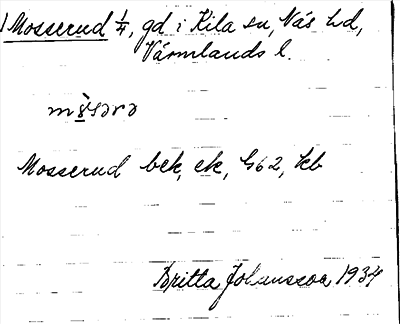 1 Mosserud 1/4, gd i Kila sn, Näs hd,
Värmlands l.
Mosserud bek, ek, G62, kb
Britta Johansson 1934